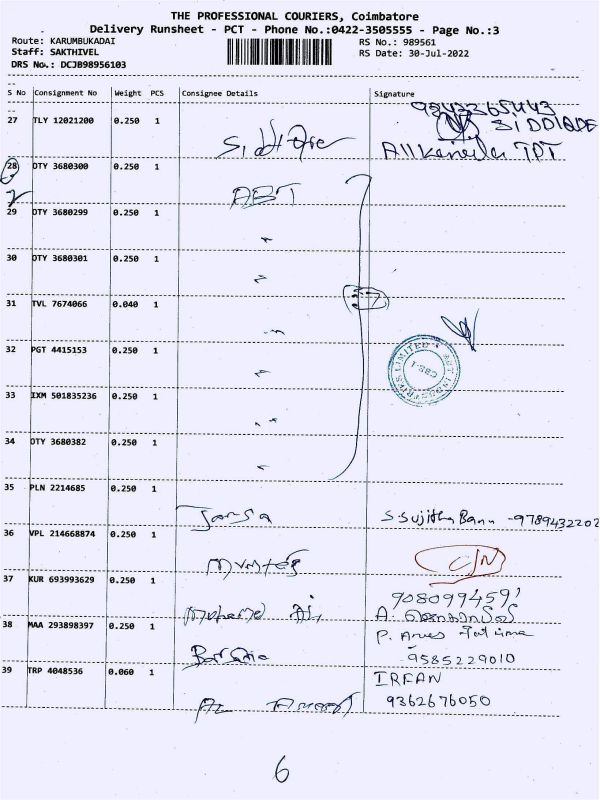 THE PROFESSIONAL COURIERS, Coimbatore
Delivery Runsheet - PCT - Phone No.:0422-3505555 - Page No.:3
Route: KARUMBUKADAI
RS No.: 989561
Staff: SAKTHIVEL
RS Date: 30-Jul-2022
DRS No.: DCJB98956103
S No Consignment No Weight PCS Consignee Details Signature
27 TLY 12021200 0.250 1
SIDDIQDE
28 OTY 3680300 0.250 1
ABT
29 OTY 3680299 0.250 1
30 OTY 3680301 0.250 1
31 TVL 7674066 0.040 1
32 PGT 4415153 0.250 1
33 IXM 501835236 0.250 1
34 OTY 3680382 0.250 1
35 PLN 2214685 0.250 1
S Sujitha Banu - 9789432202
36 VPL 214668874 0.250 1
C/N
37 KUR 693993629 0.250 1
908099459
38 MAA 293898397 0.250 1
9585229010
39 TRP 4048536 0.060 1
IRFAN
AL
9362676050
6